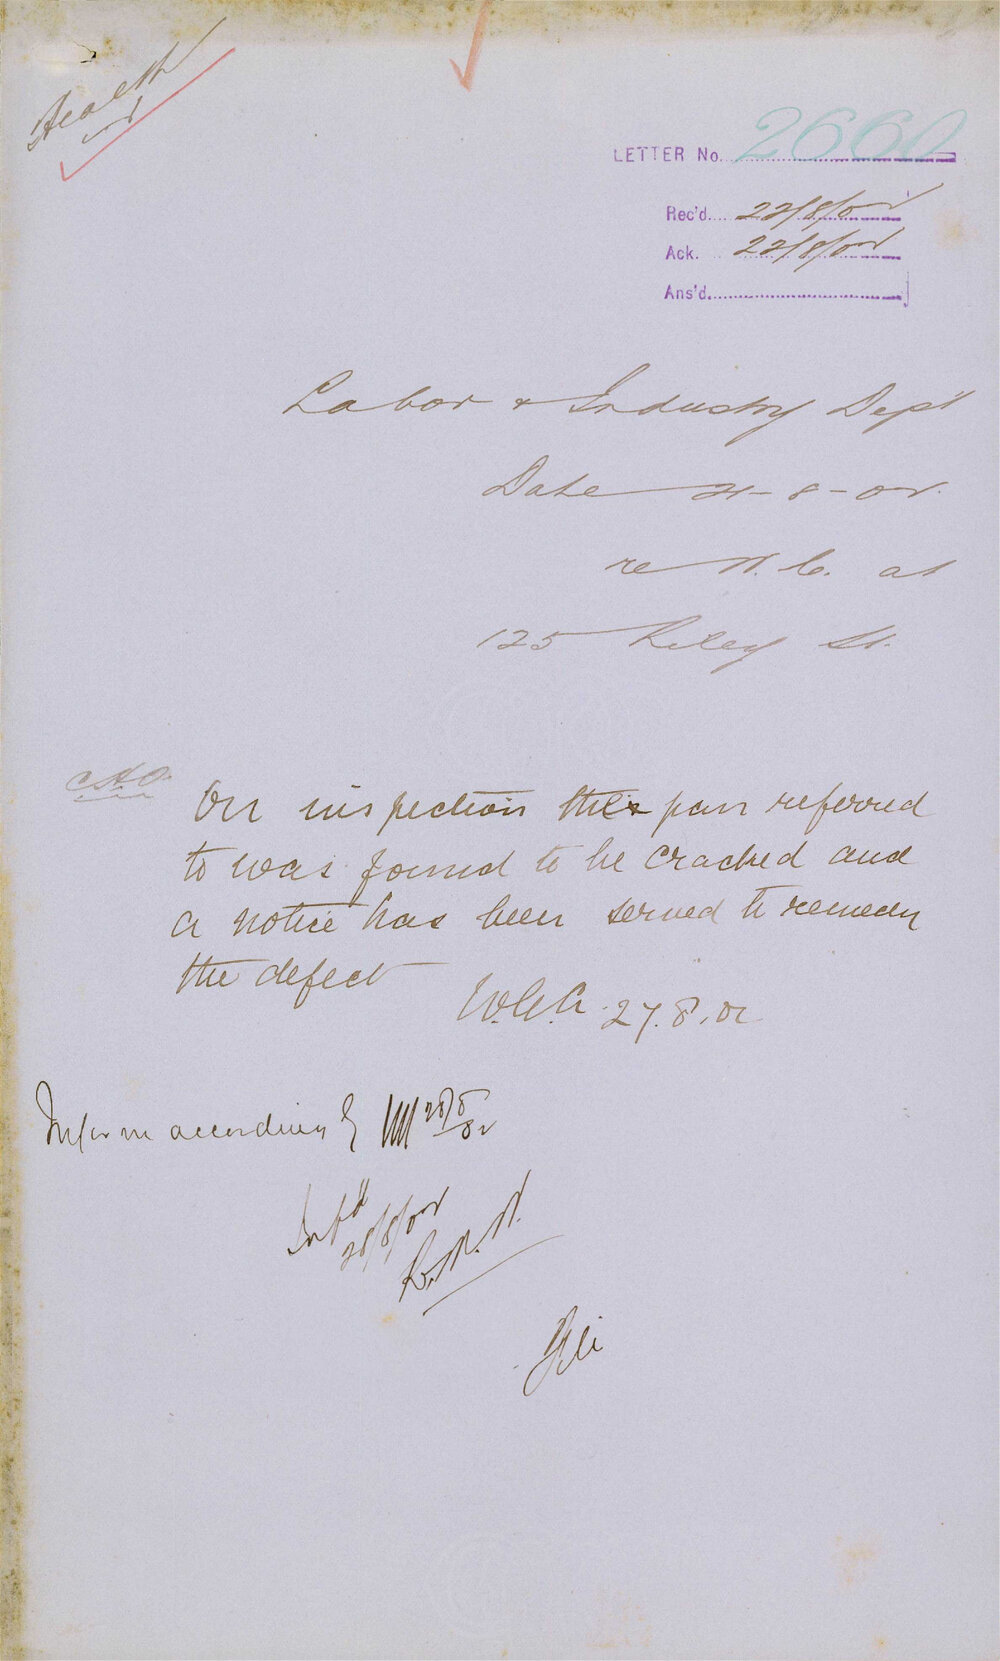 Health
LETTER No. 2660
Rec'd. 22/8/02
Ack. 22/8/02
Ans'd.
Labor & Industry Dept
Date 21-8-02.
re W.C. at
125 Riley St.
C.H.O.
On inspection the pan referred
to was found to be cracked and
a notice has been served to remedy
the defect
W.G.A. 27.8.02
Inform accordingly 28/8/02
Inf'd
28/8/02
File